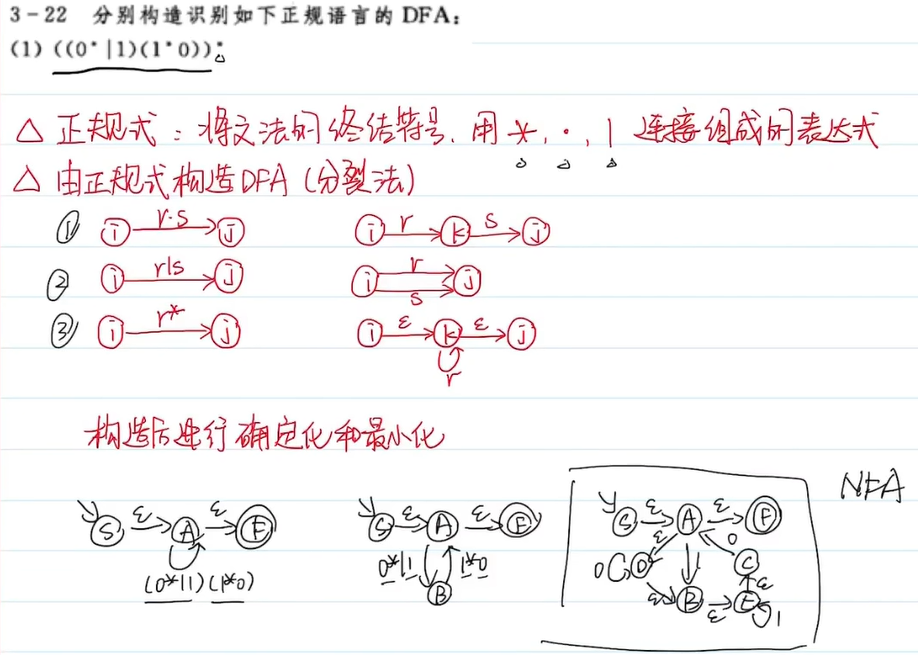 3-22 分别构造识别如下正规语言的 DFA：
(1) ((0*|1)(1*0))*
△ 正规式：将文法的终结符号，用 *, ·, | 连接组成的表达式
△ 由正规式构造DFA（分裂法）
① i r·s j i r k s j
② i r|s j i r s j
③ i r* j i ε k ε j r
构造后进行确定化和最小化
NFA
S ε A ε F (0*|1)(1*0)
S ε A ε F 0*|1 1*0 B
S ε A ε F ε 0 D 1 0 C ε B ε E ε 1